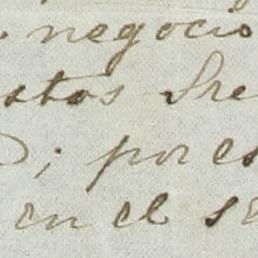 negocio
stos Sre
; por es
en el se